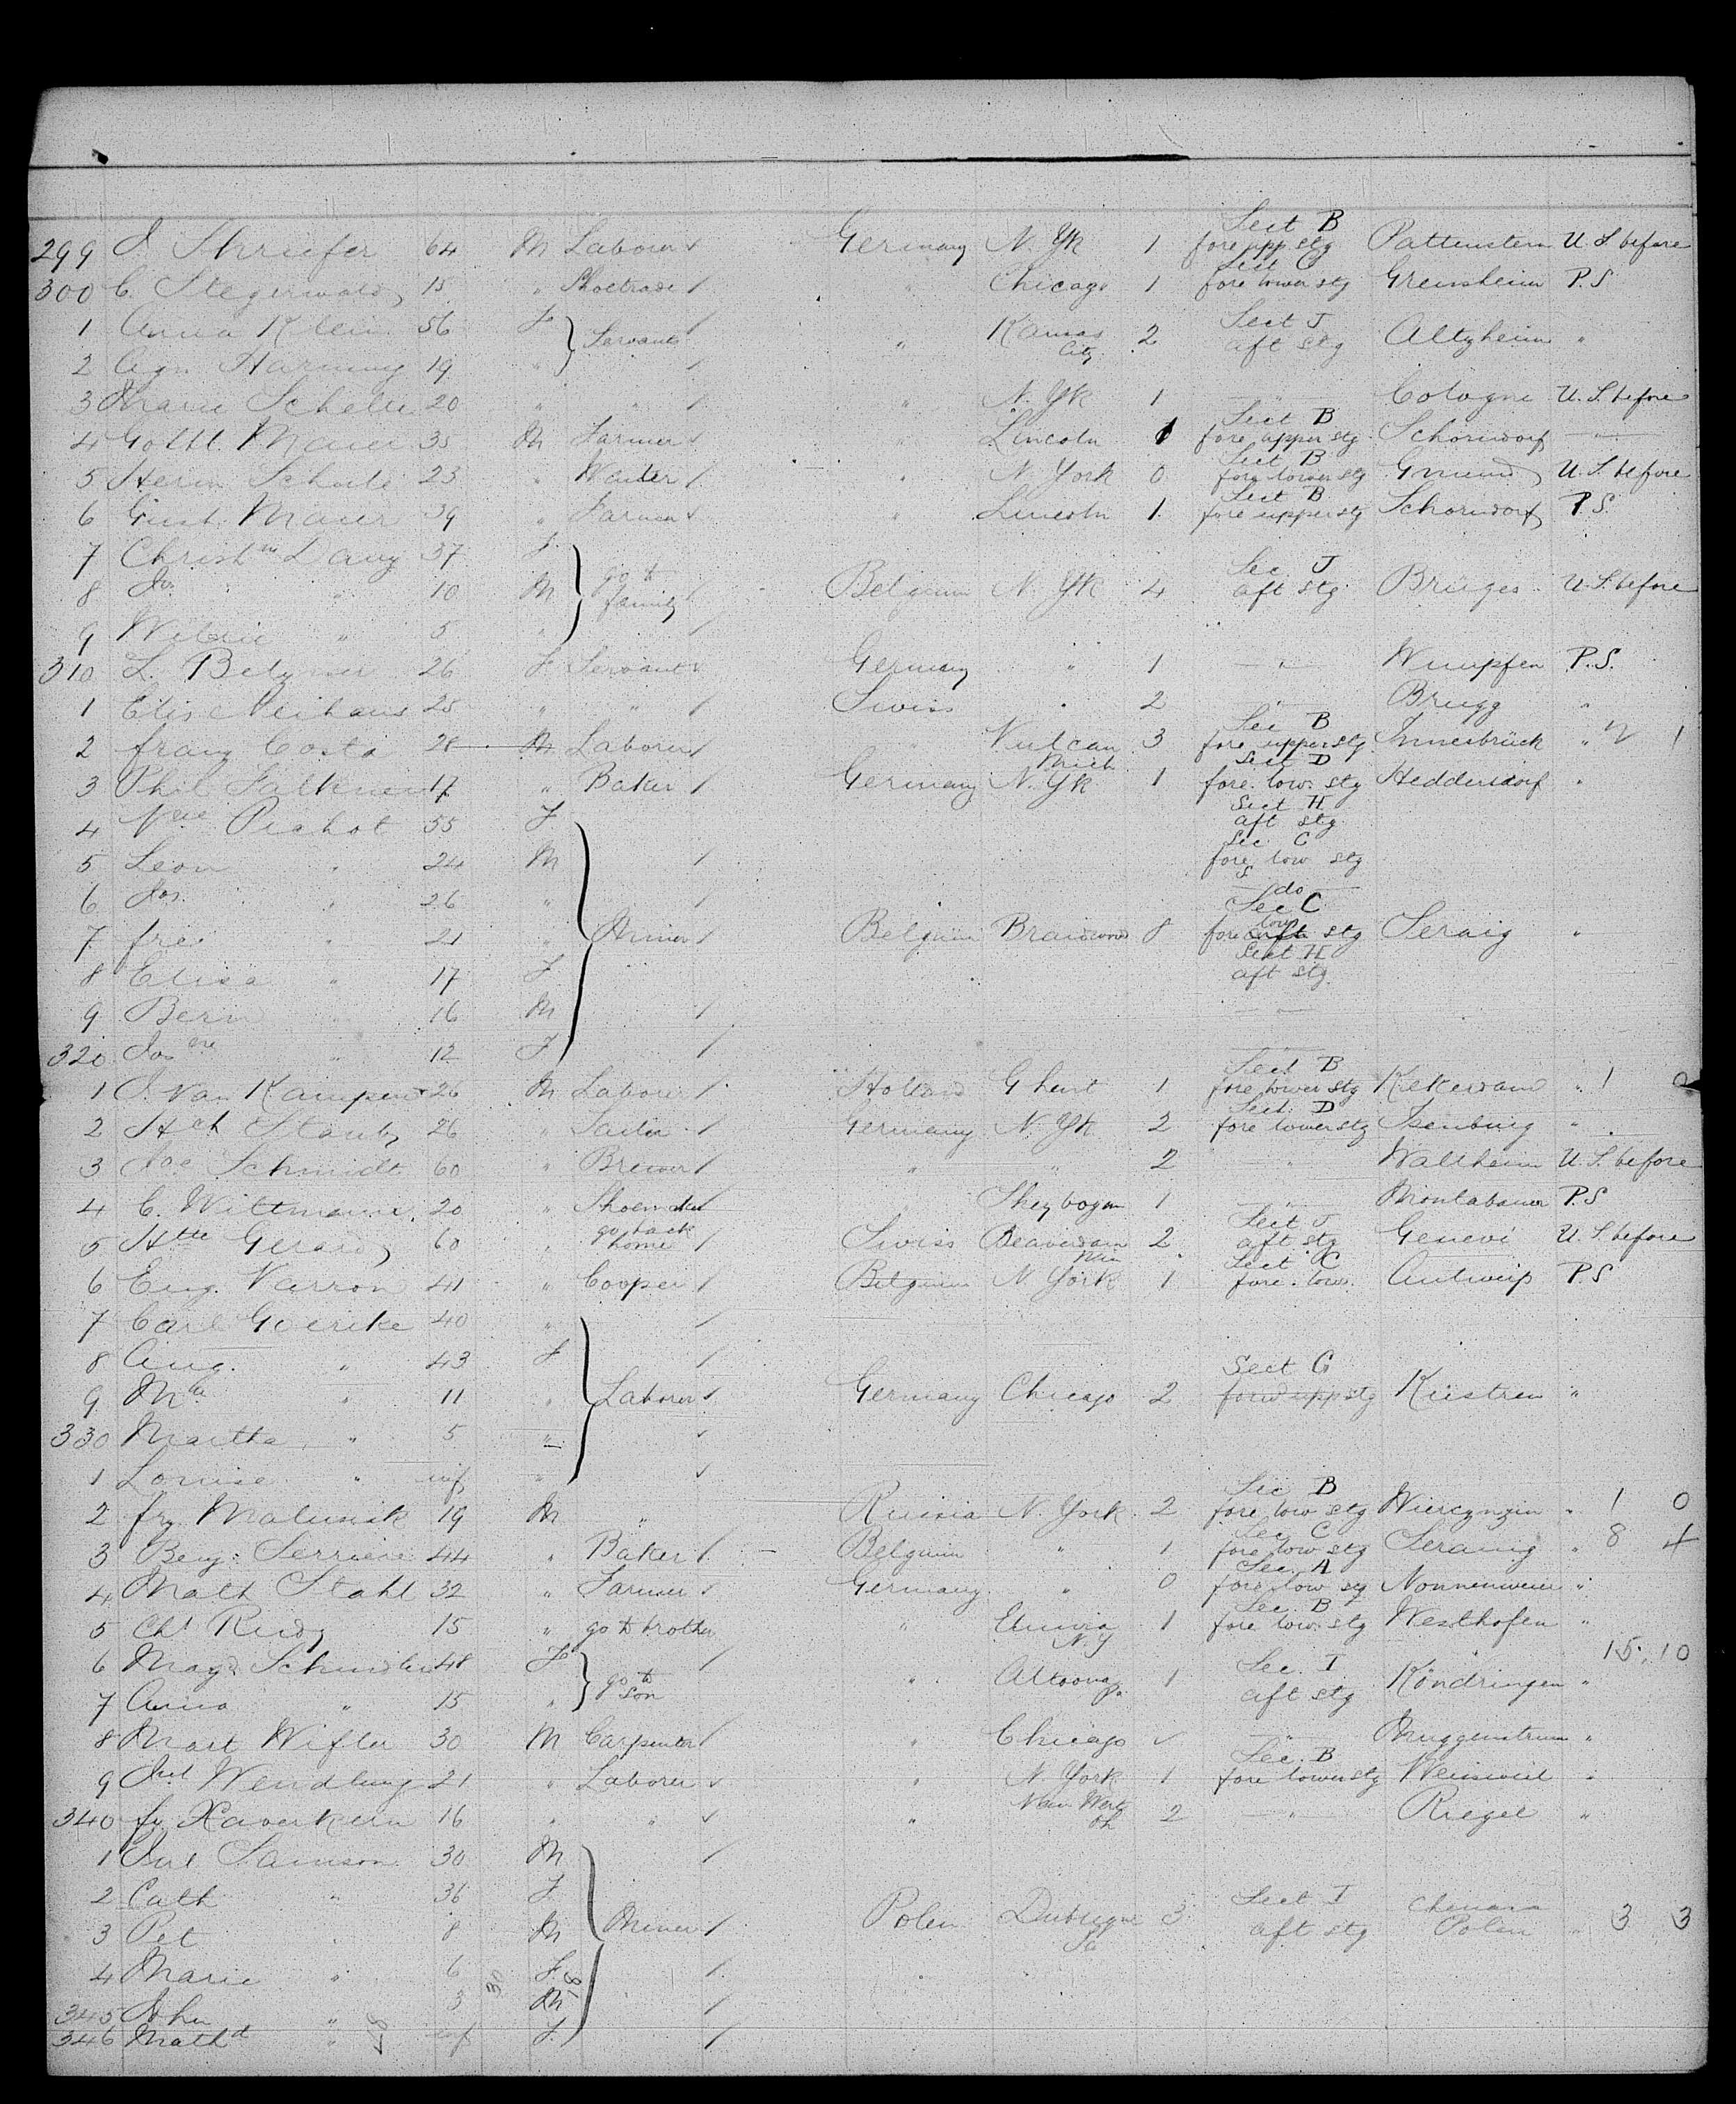 299 J. Shriefer 64 M Laborer Germany N. Yk 1 Sect B fore upp stg Pattenstern U. S. before
300 C. Stegerwald 15 " Shoetrade " Chicago 1 Sect C fore lower stg Grensheim P. S
1 Anna Klein 56 F Servant " Kansas City 2 Sect J aft stg Altzheim "
2 Agn. Harming 19 "
3 Marie Schelle 20 " " " N. Yk 1 " Cologne U. S. before
4 Gottl. Maier 35 M Farmer " Lincoln 1 Sect B fore upper stg Schorndorf "
5 Herm Schole 23 " Waiter " N York 0 Sect B fore lower stg Gmund U. S. before
6 Gust. Maier 39 " Farmer " Lincoln 1 Sect B fore upper stg Schorndorf P. S.
7 Christ 37 F
8 Jos. " 10 M go to family Belgium N. Yk 4 Sec J aft stg Bruges U. S. before
9 " 5 "
310 L. 26 F Servant Germany " 1 " Wimpfen P. S.
1 Elise Neihaus 25 " " Swiss " 2 " Brugg "
2 franz Costa 28 M Laborer " Vulcan Mich 3 Sec B fore upper stg Innesbrück " 2 1
3 Phil Falkner 17 " Baker Germany N. Yk 1 Sect D fore. low. stg Heddersdorf "
4 Vve Pichot 55 F Sect H aft stg
5 Leon " 24 M Sec C fore low stg
6 Jos. " 26 " do
7 fre " 21 " Miner Belgium Braidwood 8 Sec C fore low aft stg Seraig "
8 Elisa " 17 F Sect H aft stg
9 Bern " 16 M "
320 Josne " 12 F "
1 J. Van Kampen 26 M Laborer Holland Ghent 1 Sect B fore lower stg " 1 0
2 Hch 26 " Germany N. Yk 2 Sect. D fore lower stg Isenburg "
3 Schmidt 60 " Brewer " " 2 " Waltheim U. S. before
4 C. Wittmann 20 " Shoemaker Sheybogan 1 " Montabauer P. S
5 Htte Gerard 60 " go back home Swiss Beaverdam 2 Sect J aft stg Genevi U. S. before
6 Eug. Varron 41 " Cooper Belgium N. York 1 Sect C fore. low. Antwerp P. S
7 Carl Goerike 40 "
8 Aug. " 43 F
9 Ma " 11 " Laborer Germany Chicago 2 Sect G forwd upp stg Küstren "
330 Martha " 5 "
1 Louise " inf "
2 fr. Malunik 19 M " Russia N. York 2 Sec B fore low stg " 1 0
3 Benj. Serriere 44 " Baker Belgium " 1 Sec C fore low stg Seraing " 8 4
4 Math Stahl 32 " Farmer Germany " 0 Sec. A fore low stg Nonnenweier "
5 Chs 15 " go to brother " Elmira N. Y 1 Sec. B fore low. stg Westhofen "
15. 10
6 Magd. Schindler 48 F go to son " Altoona Pa 1 Sec. I aft stg Kondringen "
7 Anna " 15 "
8 Mart Wifler 30 M Carpenter " Chicago " "
9 Wendling 21 " Laborer " N. York 1 Sec. B fore lower stg Weisweil "
340 fr Xaver Kern 16 " " " Oh 2 " Riegel "
1 Samson 30 M
2 Cath " 36 F
3 Pet " 8 M Miner Polen Dubuque 3 Sect I aft stg Polen " 3 3
4 Marie " 6 F
345 John " 3 M
346 Mathd " inf F